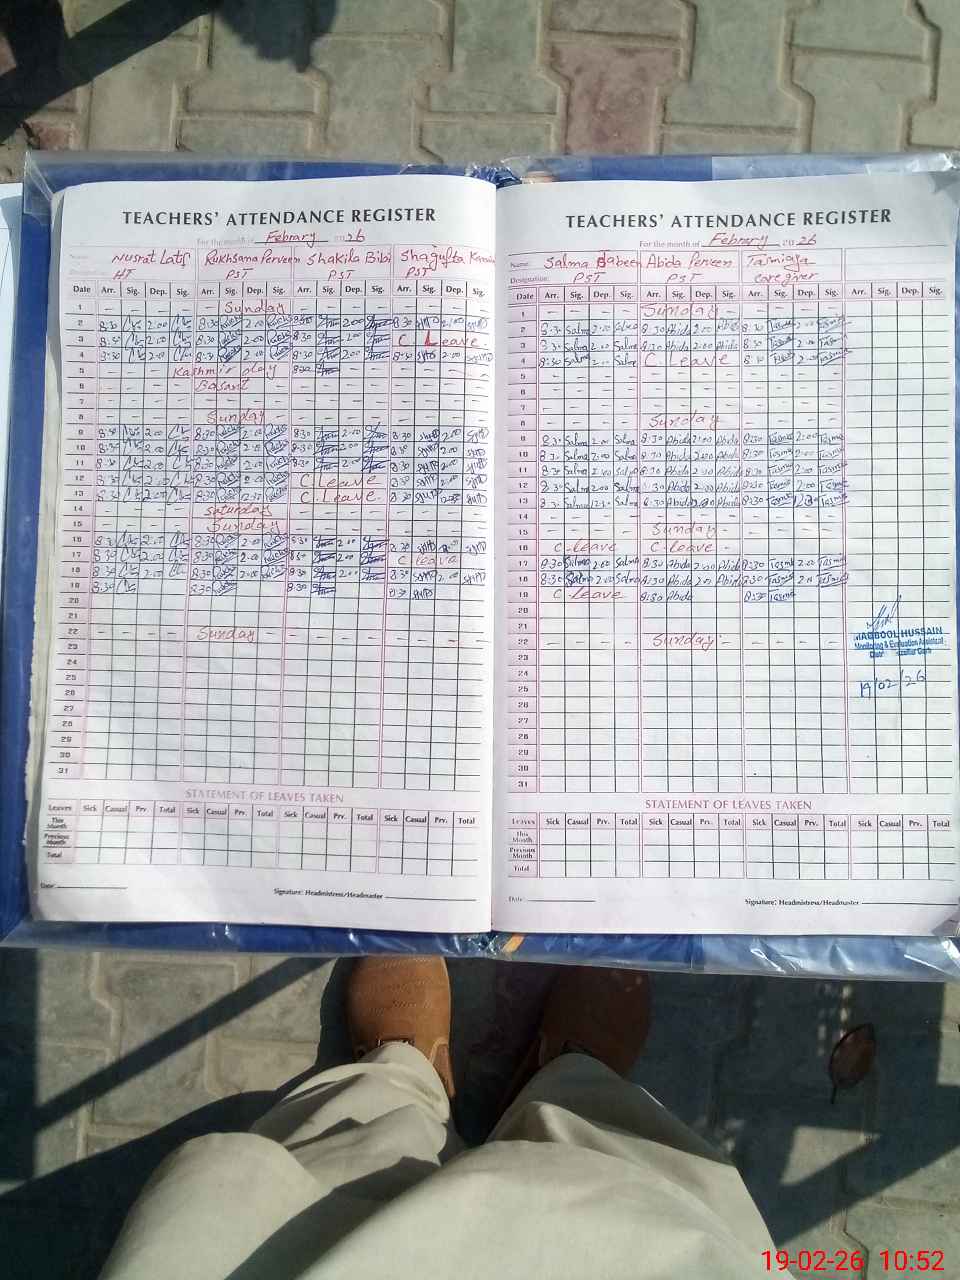 TEACHERS' ATTENDANCE REGISTER
For the month of Febrary 2026
Name: Nusrat Latif Rukhsana Perveen Shakila Bibi Shagufta
Designation: HT PST PST PST
Date Arr. Sig. Dep. Sig. Arr. Sig. Dep. Sig. Arr. Sig. Dep. Sig. Arr. Sig. Dep. Sig.
1 - - - - Sunday - - - -
2 8:30 2:00 8:30 2:00 8:30 2:00 8:30 2:00
3 8:30 2:00 8:30 2:00 8:30 2:00 C Leave
4 8:30 2:00 8:30 2:00 8:30 2:00 8:30 2:00
5 Kashmir day 8:30
6 - - - - Basant - - - -
7 - - - -
8 - - - - Sunday - - - -
9 8:30 2:00 8:30 2:00 8:30 2:00 8:30 2:00
10 8:30 2:00 8:30 2:00 8:30 2:00 8:30 2:00
11 8:30 2:00 8:30 2:00 8:30 2:00 8:30 2:00
12 8:30 2:00 8:30 2:00 C Leave 8:30 2:00
13 8:30 12:30 8:30 12:30 C. Leave 8:30 12:30
14 - - - - Saturday - - - -
15 - - - - Sunday - - - -
16 8:30 2:00 8:30 2:00 8:30 2:00 8:30 2:00
17 8:30 2:00 8:30 2:00 8:30 2:00 C leave
18 8:30 2:00 8:30 2:00 8:30 2:00 8:30 2:00
19 8:30 8:30 8:30 8:30
20
21
22 - - - - Sunday - - - -
23
24
25
26
27
28
29
30
31
STATEMENT OF LEAVES TAKEN
Leaves Sick Casual Prv. Total Sick Casual Prv. Total Sick Casual Prv. Total Sick Casual Prv. Total
This Month
Previous Month
Total
Date: Signature: Headmistress/Headmaster
TEACHERS' ATTENDANCE REGISTER
For the month of Febrary 2026
Name: Salma Jabeen Abida Perveen Tasmiaya
Designation: PST PST caregiver
Date Arr. Sig. Dep. Sig. Arr. Sig. Dep. Sig. Arr. Sig. Dep. Sig. Arr. Sig. Dep. Sig.
1 - - - - Sunday - - - -
2 8:30 Salma 2:00 Salma 8:30 Abida 2:00 Abida 8:30 2:00
3 8:30 Salma 2:00 Salma 8:30 Abida 2:00 Abida 8:30 2:00
4 8:30 Salma 2:00 Salma C Leave 8:30 2:00
5 - - - -
6 - - - -
7 - - - -
8 - - - - Sunday - - - -
9 8:30 Salma 2:00 Salma 8:30 Abida 2:00 Abida 8:30 2:00
10 8:30 Salma 2:00 Salma 8:30 Abida 2:00 Abida 8:30 2:00
11 8:30 Salma 2:00 Salma 8:30 Abida 2:00 Abida 8:30 2:00
12 8:30 Salma 2:00 Salma 8:30 Abida 2:00 Abida 8:30 2:00
13 8:30 Salma 12:30 Salma 8:30 Abida 12:30 Abida 8:30 12:30
14 - - - -
15 - - - - Sunday - - - -
16 C-leave C-leave - - - -
17 8:30 Salma 2:00 Salma 8:30 Abida 2:00 Abida 8:30 2:00
18 8:30 Salma 2:00 Salma 8:30 Abida 2:00 Abida 8:30 2:00
19 C-leave 8:30 Abida 8:30
20
21
22 - - - - Sunday - - - -
MAQBOOL HUSSAIN
Monitoring & Evaluation Assistant
19/02/26
23
24
25
26
27
28
29
30
31
STATEMENT OF LEAVES TAKEN
Leaves Sick Casual Prv. Total Sick Casual Prv. Total Sick Casual Prv. Total Sick Casual Prv. Total
This Month
Previous Month
Total
Date: Signature: Headmistress/Headmaster
19-02-26 10:52